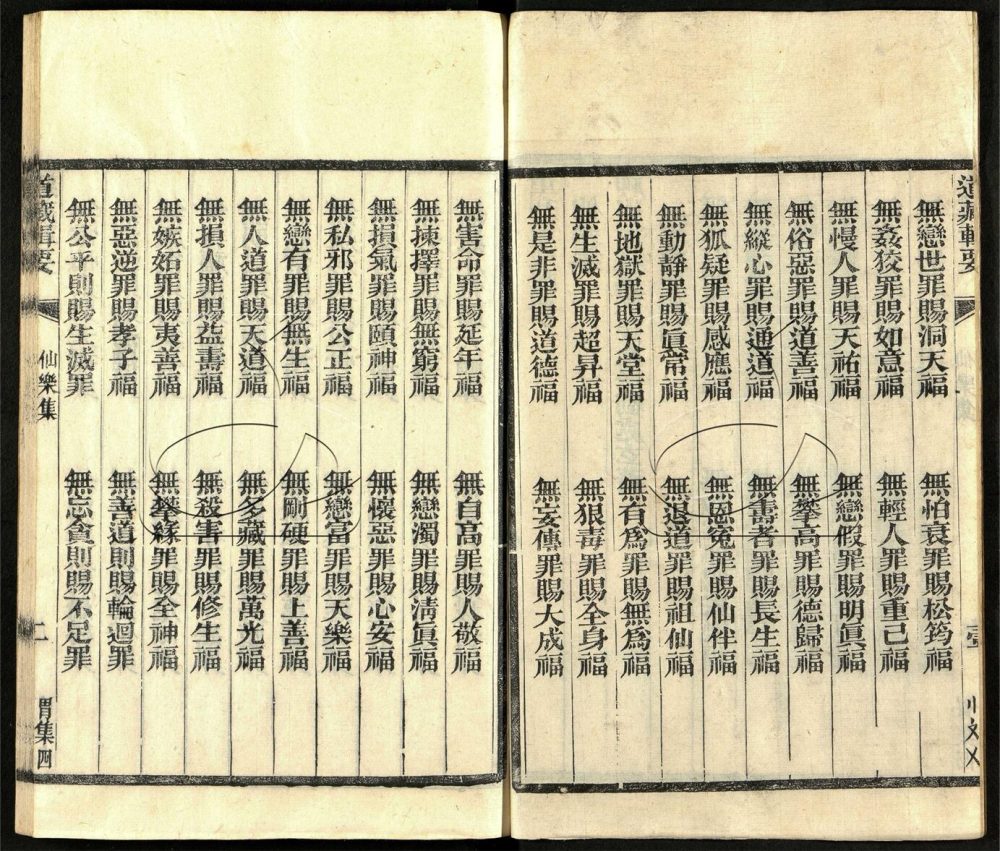 道藏輯要
無戀世罪賜洞天福 無怕衰罪賜松筠福
無姦狡罪賜如意福 無輕人罪賜重己福
無慢人罪賜天祐福 無戀假罪賜明眞福
無俗惡罪賜道善福 無攀高罪賜德歸福
無縱心罪賜通道福 無壽者罪賜長生福
無狐疑罪賜感應福 無恩冤罪賜仙伴福
無動靜罪賜眞常福 無退道罪賜祖仙福
無地獄罪賜天堂福 無有爲罪賜無爲福
無生滅罪賜超昇福 無狠毒罪賜全身福
無是非罪賜道德福 無妄傳罪賜大成福
無害命罪賜延年福 無自高罪賜人敬福
無揀擇罪賜無窮福 無戀濁罪賜清眞福
無損氣罪賜頤神福 無懷惡罪賜心安福
無私邪罪賜公正福 無戀富罪賜天樂福
無戀有罪賜無生福 無剛硬罪賜上善福
無人道罪賜天道福 無多藏罪賜萬光福
無損人罪賜益壽福 無殺害罪賜修生福
無嫉妬罪賜夷善福 無攀緣罪賜全神福
無惡逆罪賜孝子福 無善道則賜輪迴罪
無公平則賜生滅罪 無忘貪則賜不足罪
道藏輯要 仙樂集 二 胃集四